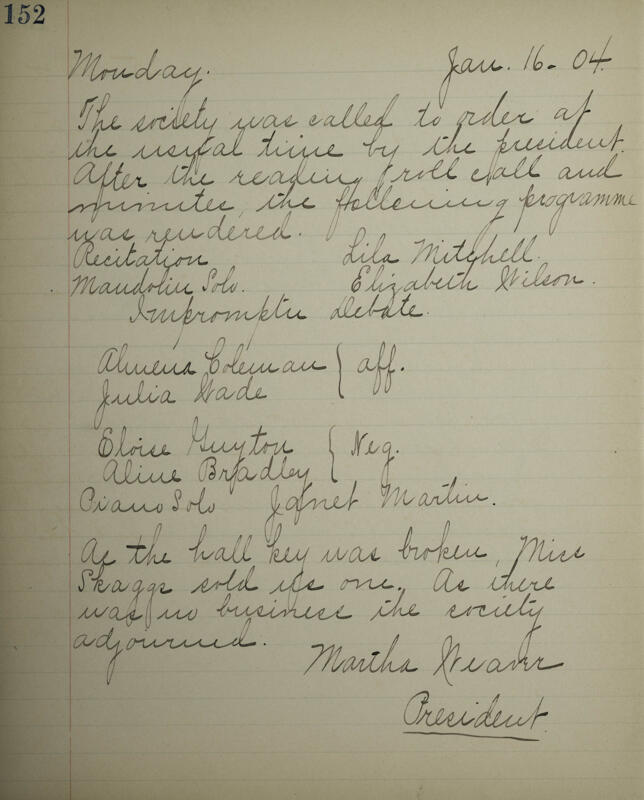 152
Monday. Jan. 16 - 04.
The society was called to order at
the usual time by the president.
After the reading, roll call and
minutes, the following programme
was rendered.
Recitation Lila Mitchell.
Mandolin Solo. Elizabeth Wilson.
Impromptu Debate.
Almena Coleman } aff.
Julia Wade
Eloise Guyton } Neg.
Aline Bradley
Piano Solo Janet Martin.
As the hall key was broken, Miss
Skaggs sold us one. As there
was no business the society
adjourned.
Martha Weaver
President.